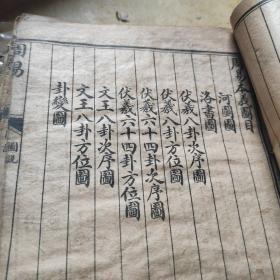 周易本義圖目
河圖圖
洛書圖
伏羲八卦次序圖
伏羲八卦方位圖
伏羲六十四卦次序圖
伏羲六十四卦方位圖
文王八卦次序圖
文王八卦方位圖
卦變圖
周易
圖說